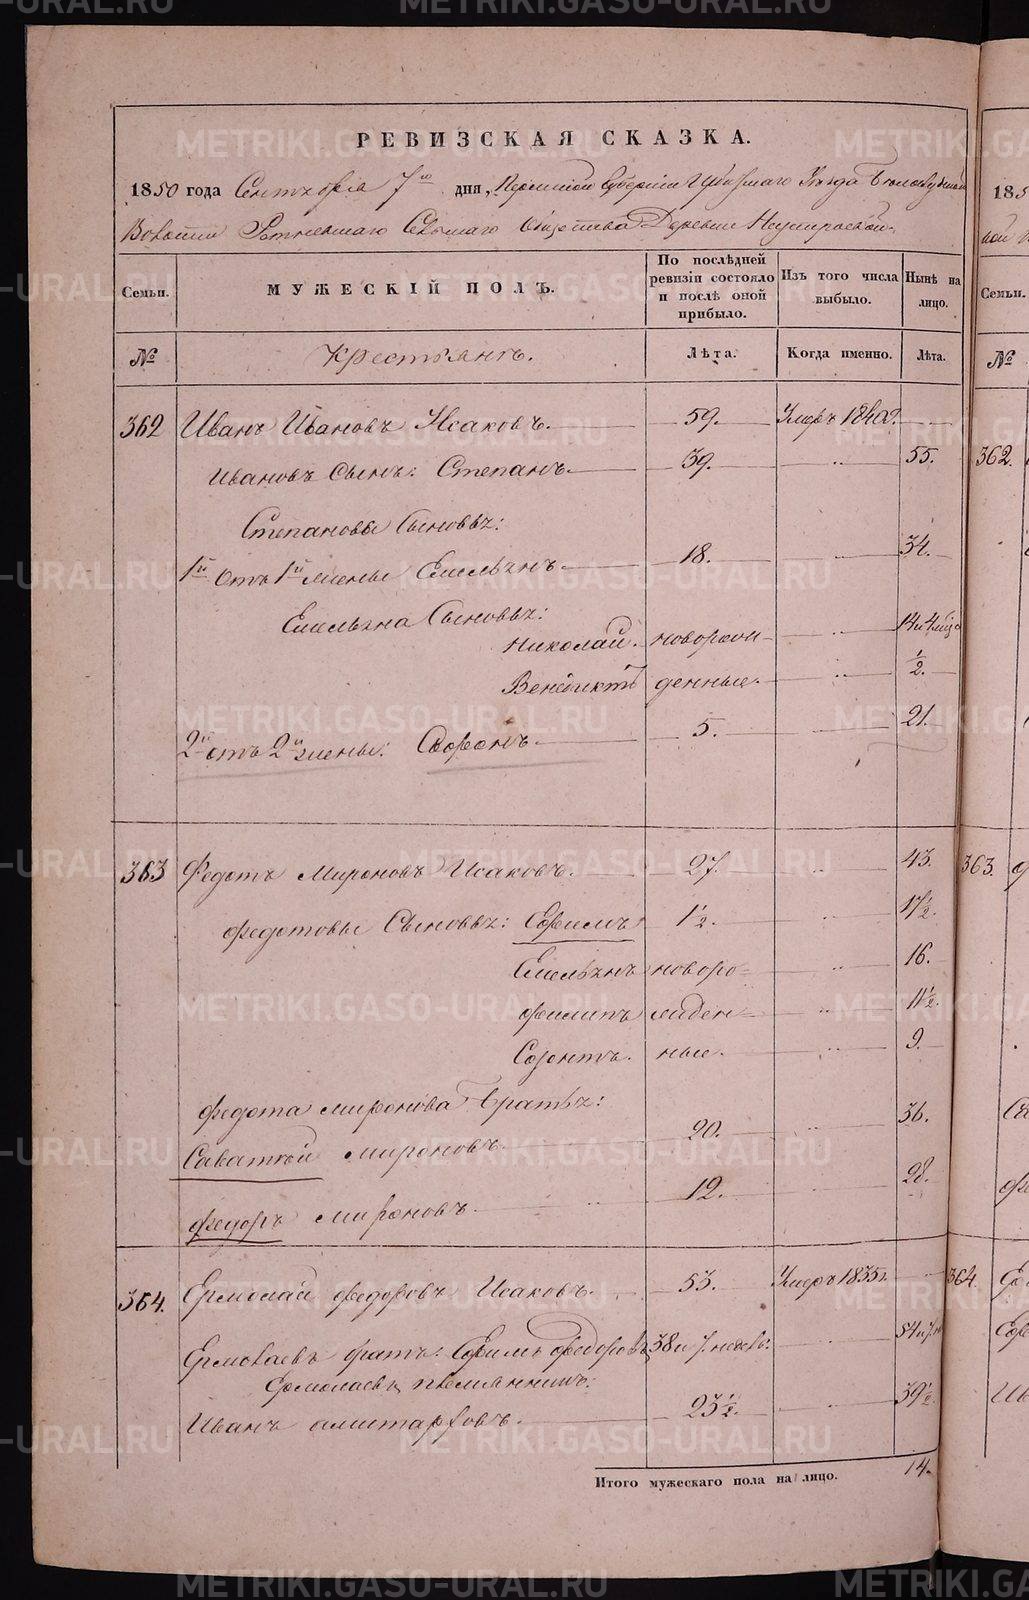 РЕВИЗСКАЯ СКАЗКА.
1850 года Сентября 7го дня, Пермской Губерніи Ирбитскаго Уѣзда
Волости Сельскаго Общества Деревни
Семьи. МУЖЕСКІЙ ПОЛЪ. По послѣдней ревизіи состояло и послѣ оной прибыло. Изъ того числа выбыло. Нынѣ на лицо.
№ Крестьянъ. Лѣта. Когда именно. Лѣта.
362 Иванъ Ивановъ Исаковъ. 59. Умеръ 1840.
Ивановъ Сынъ: Степанъ 39. 55.
Степановы Сыновья:
1й отъ 1й жены Емельянъ 18. 34.
Емельяна Сыновья:
Николай новорож- 14 и 4 мѣсяца
Венедиктъ денные. 1/2.
2й отъ 2й жены: Софонъ 5. 21.
363 Федотъ Мироновъ Исаковъ. 27. 43.
Федотовы Сыновья: Ефимъ 1 1/2. 17 1/2.
Емельянъ новоро- 16.
Филипъ жден- 11 1/2.
Созонтъ. ные. 9.
Федота Миронова братья:
Саватѣй Мироновъ 20. 36.
Федоръ Мироновъ 12. 28.
364. Ермолай Федоровъ Исаковъ. 53. Умеръ 1835г.
Ермолаевъ братъ: Ефимъ Федоровъ 38 и 7 недель: 54 и 7 н
Ермолаевъ племянникъ:
Иванъ 23 1/2. 39 1/2.
Итого мужескаго пола на лицо. 14.
185
Семьи.
№
362.
363.
364.
METRIKI.GASO-URAL.RU